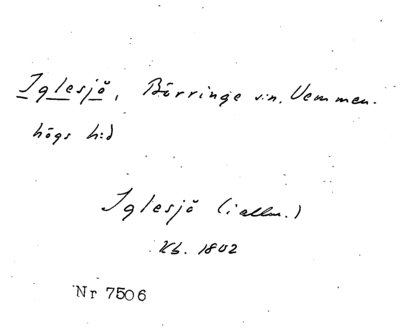 Iglesjö, Börringe sn. Vemmen-
högs h:d
Iglesjö (i allm.)
Kb. 1802
Nr 7506